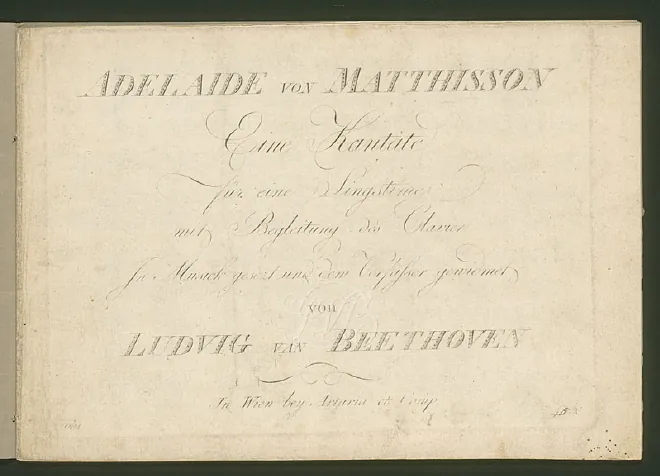 ADELAIDE VON MATTHISSON
Eine Kantate
für eine Singstimme
mit Begleitung des Clavier
In Musick gesezt und dem Verfasser gewidmet
VON
LUDVIG VAN BEETHOVEN
In Wien bey Artaria et Comp.